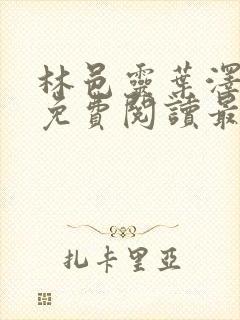 林邑靈葉澤
免費閱讀最
扎卡里亞